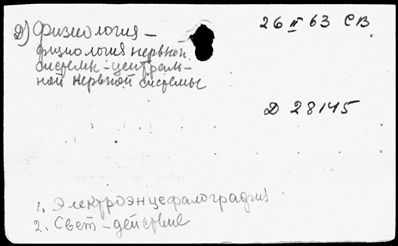 Д) Физиология –
физиология нервной
системы – централь-
ной нервной системы
26 II 63 СВ
D 28145
1. Электроэнцефалография
2. Свет – действие